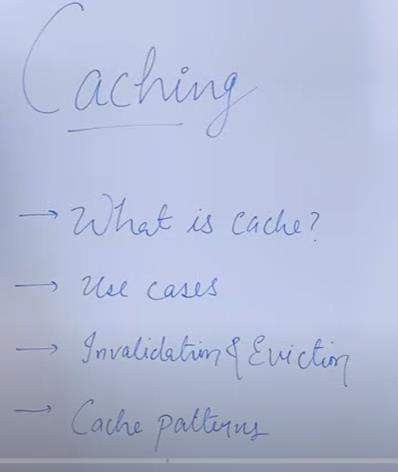 Caching
→ What is cache?
→ Use cases
→ Invalidation & Eviction
→ Cache patterns